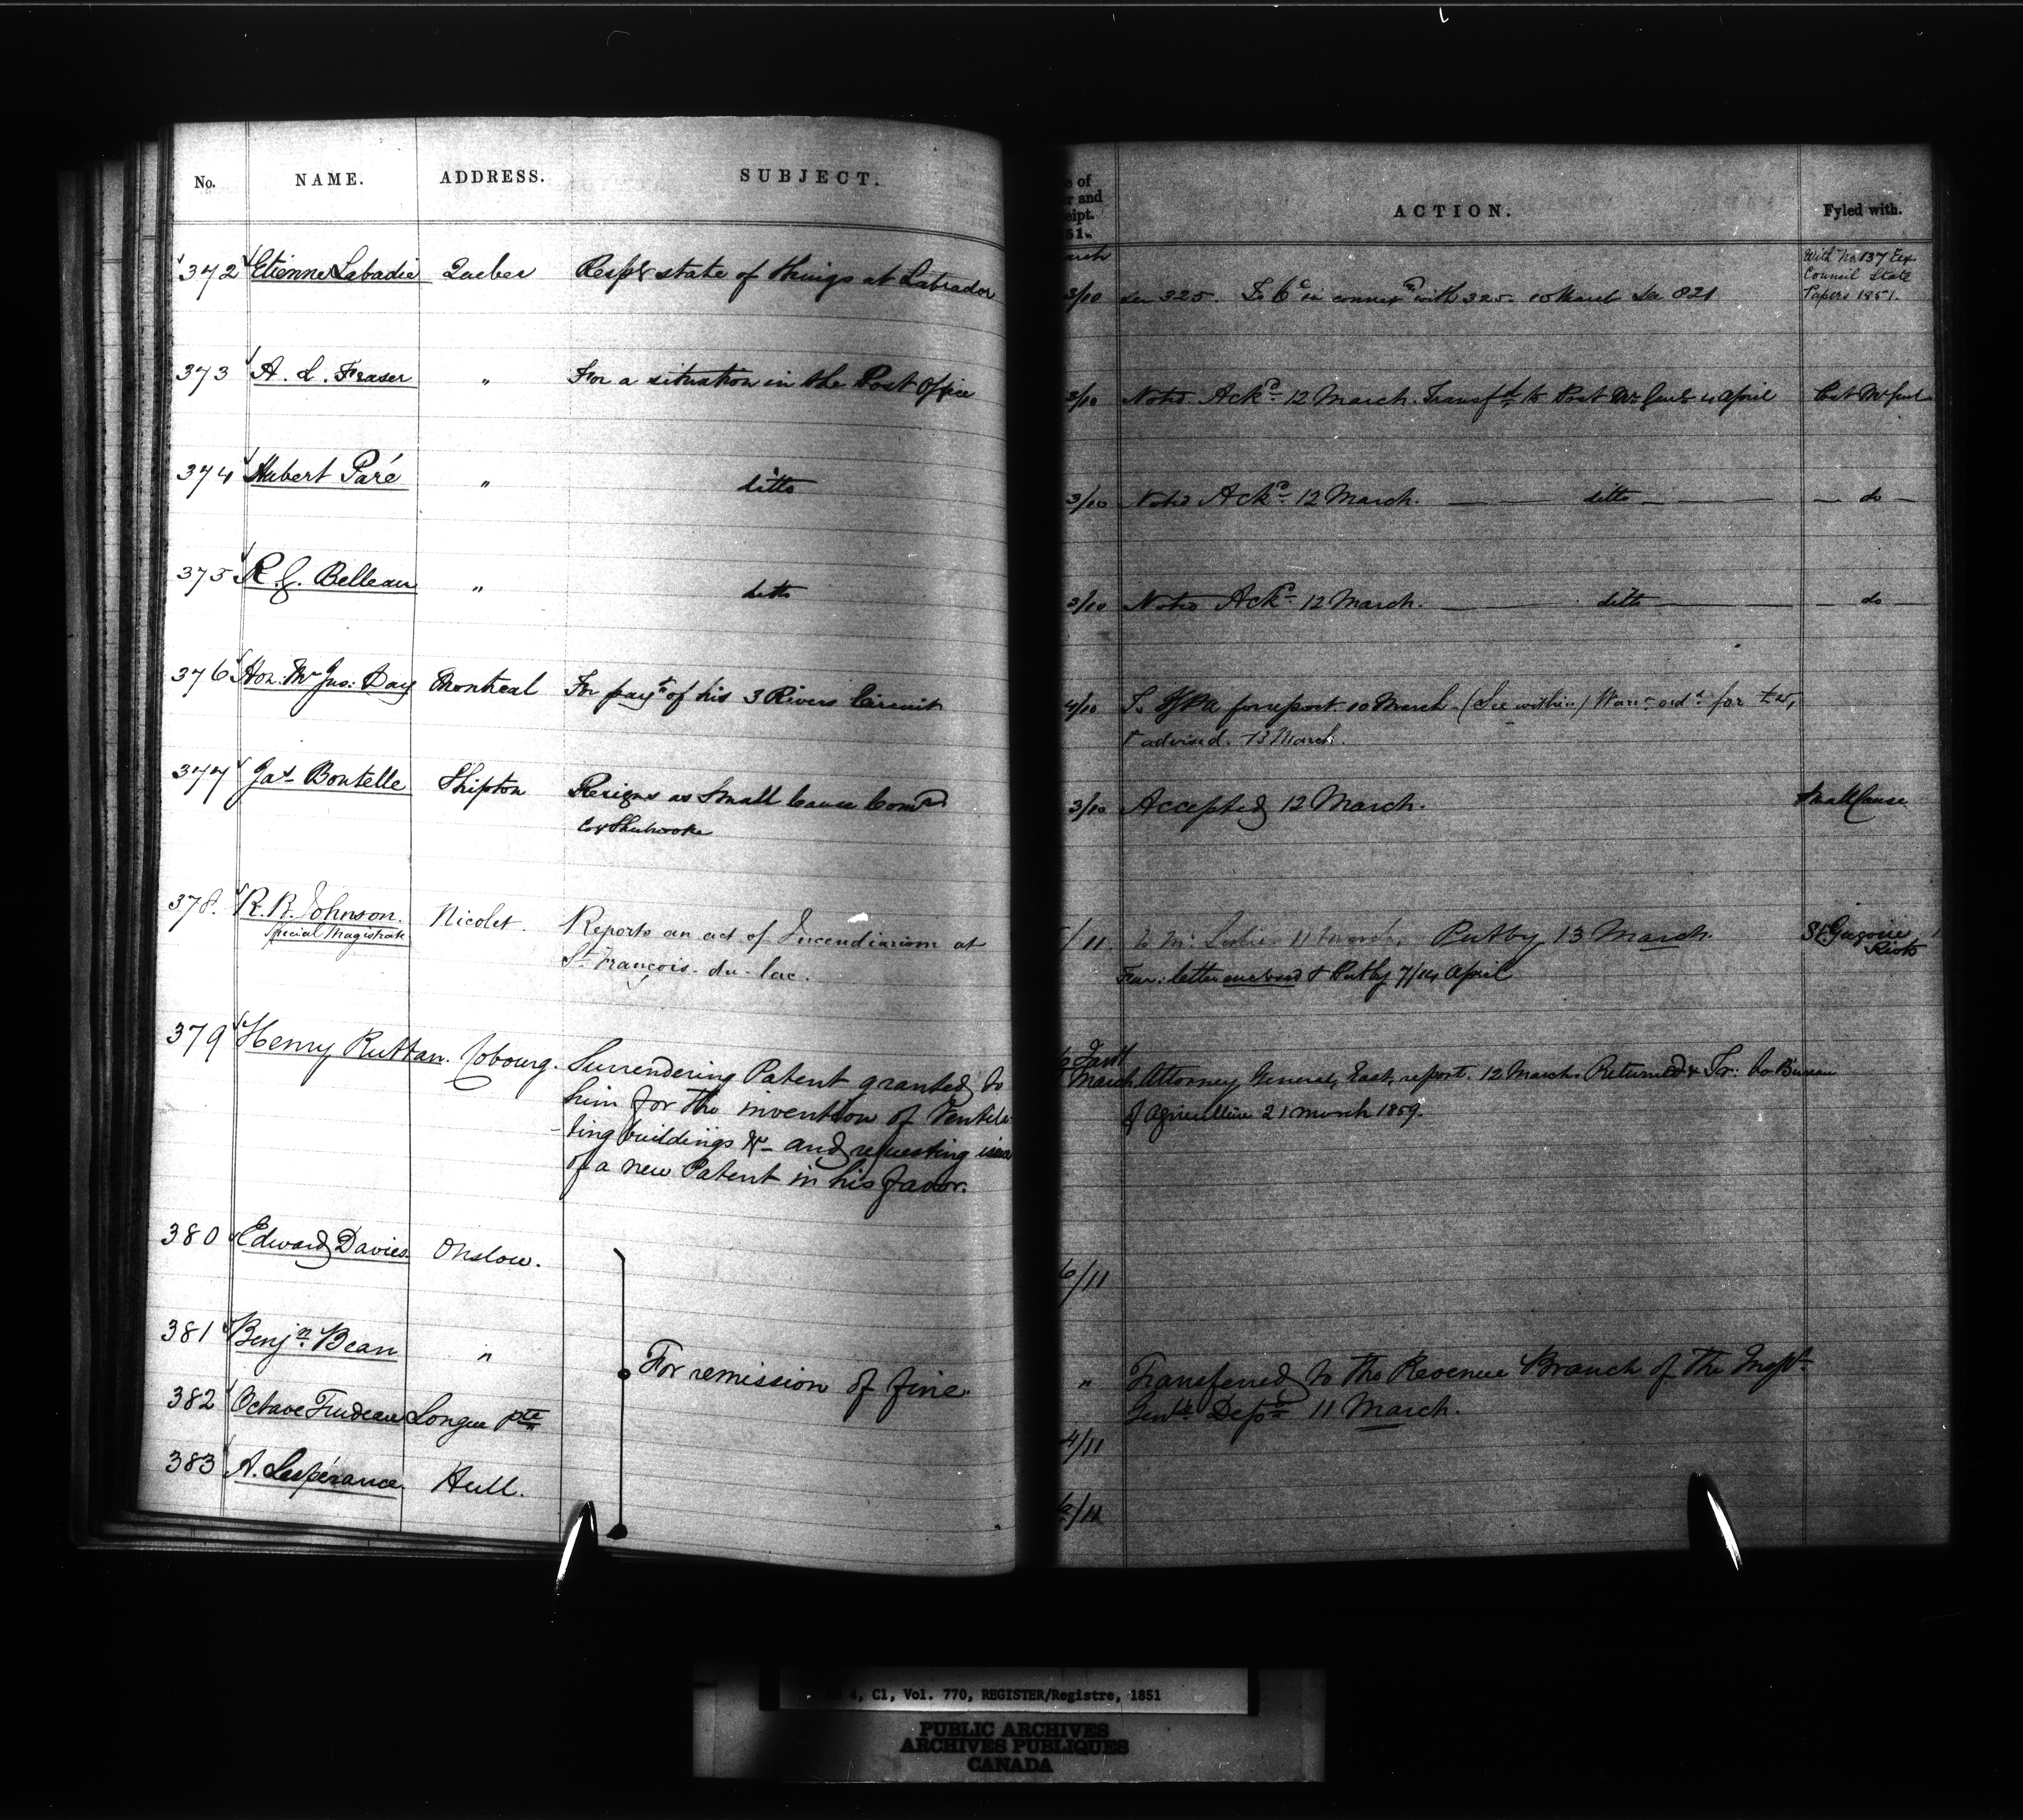 No. NAME. ADDRESS. SUBJECT.
372 Etienne Labadie Quebec Respg state of things at Labrador
373 A. L. Fraser " For a situation in the Post Office
374 Hubert Paré " ditto
375 R. G. Belleau " ditto
376 Hon: Mr Jus: Day Montreal For payt of his 3 Rivers Circuit
377 Jas Boutelle Shipton Resigns as Small Cause Comr
Co Sherbrooke
378. R. R. Johnson. Nicolet. Reports an act of Incendiarism at
Special Magistrate St François-du-lac.
379 Henry Ruttan. Cobourg. Surrendering Patent granted to
him for the invention of Ventila-
-ting buildings &c and requesting issue
of a new Patent in his favor.
380 Edward Davies. Onslow.
381 Benjn Bean "
For remission of fine.
382 Octave Trudeau Longue pte
383 A. Lespérance Hull.
e of
r and
eipt.
51.
ACTION. Fyled with.
arch
With No 137 Ex
Council State
Papers 1851.
3/10 325. To C in connexn with 325. 10 March 821
3/10 Noted Ackd 12 March. Transfd to Post Mr Genl 4 April Post Mr Genl
3/10 Noted Ackd 12 March. — ditto — — do —
3/10 Noted Ackd 12 March. — ditto — — do —
4/10 To for report 10 March (See within) Warrt ordd for
& advised. 13 March.
3/10 Accepted 12 March. Small Cause
/11. To Mr Leslie 11 March. Put by 13 March. St Gregoire
Riots
letter enclosed & Put by 7/14 April
March Attorney General, East, report. 12 March. Returned & Tr: to Bureau
of Agriculture 21 March 1859.
6/11
" Transferred to the Revenue Branch of the Inspr
Genls Dept 11 March.
4/11
/11
4, C1, Vol. 770, REGISTER/Registre, 1851
PUBLIC ARCHIVES
ARCHIVES PUBLIQUES
CANADA